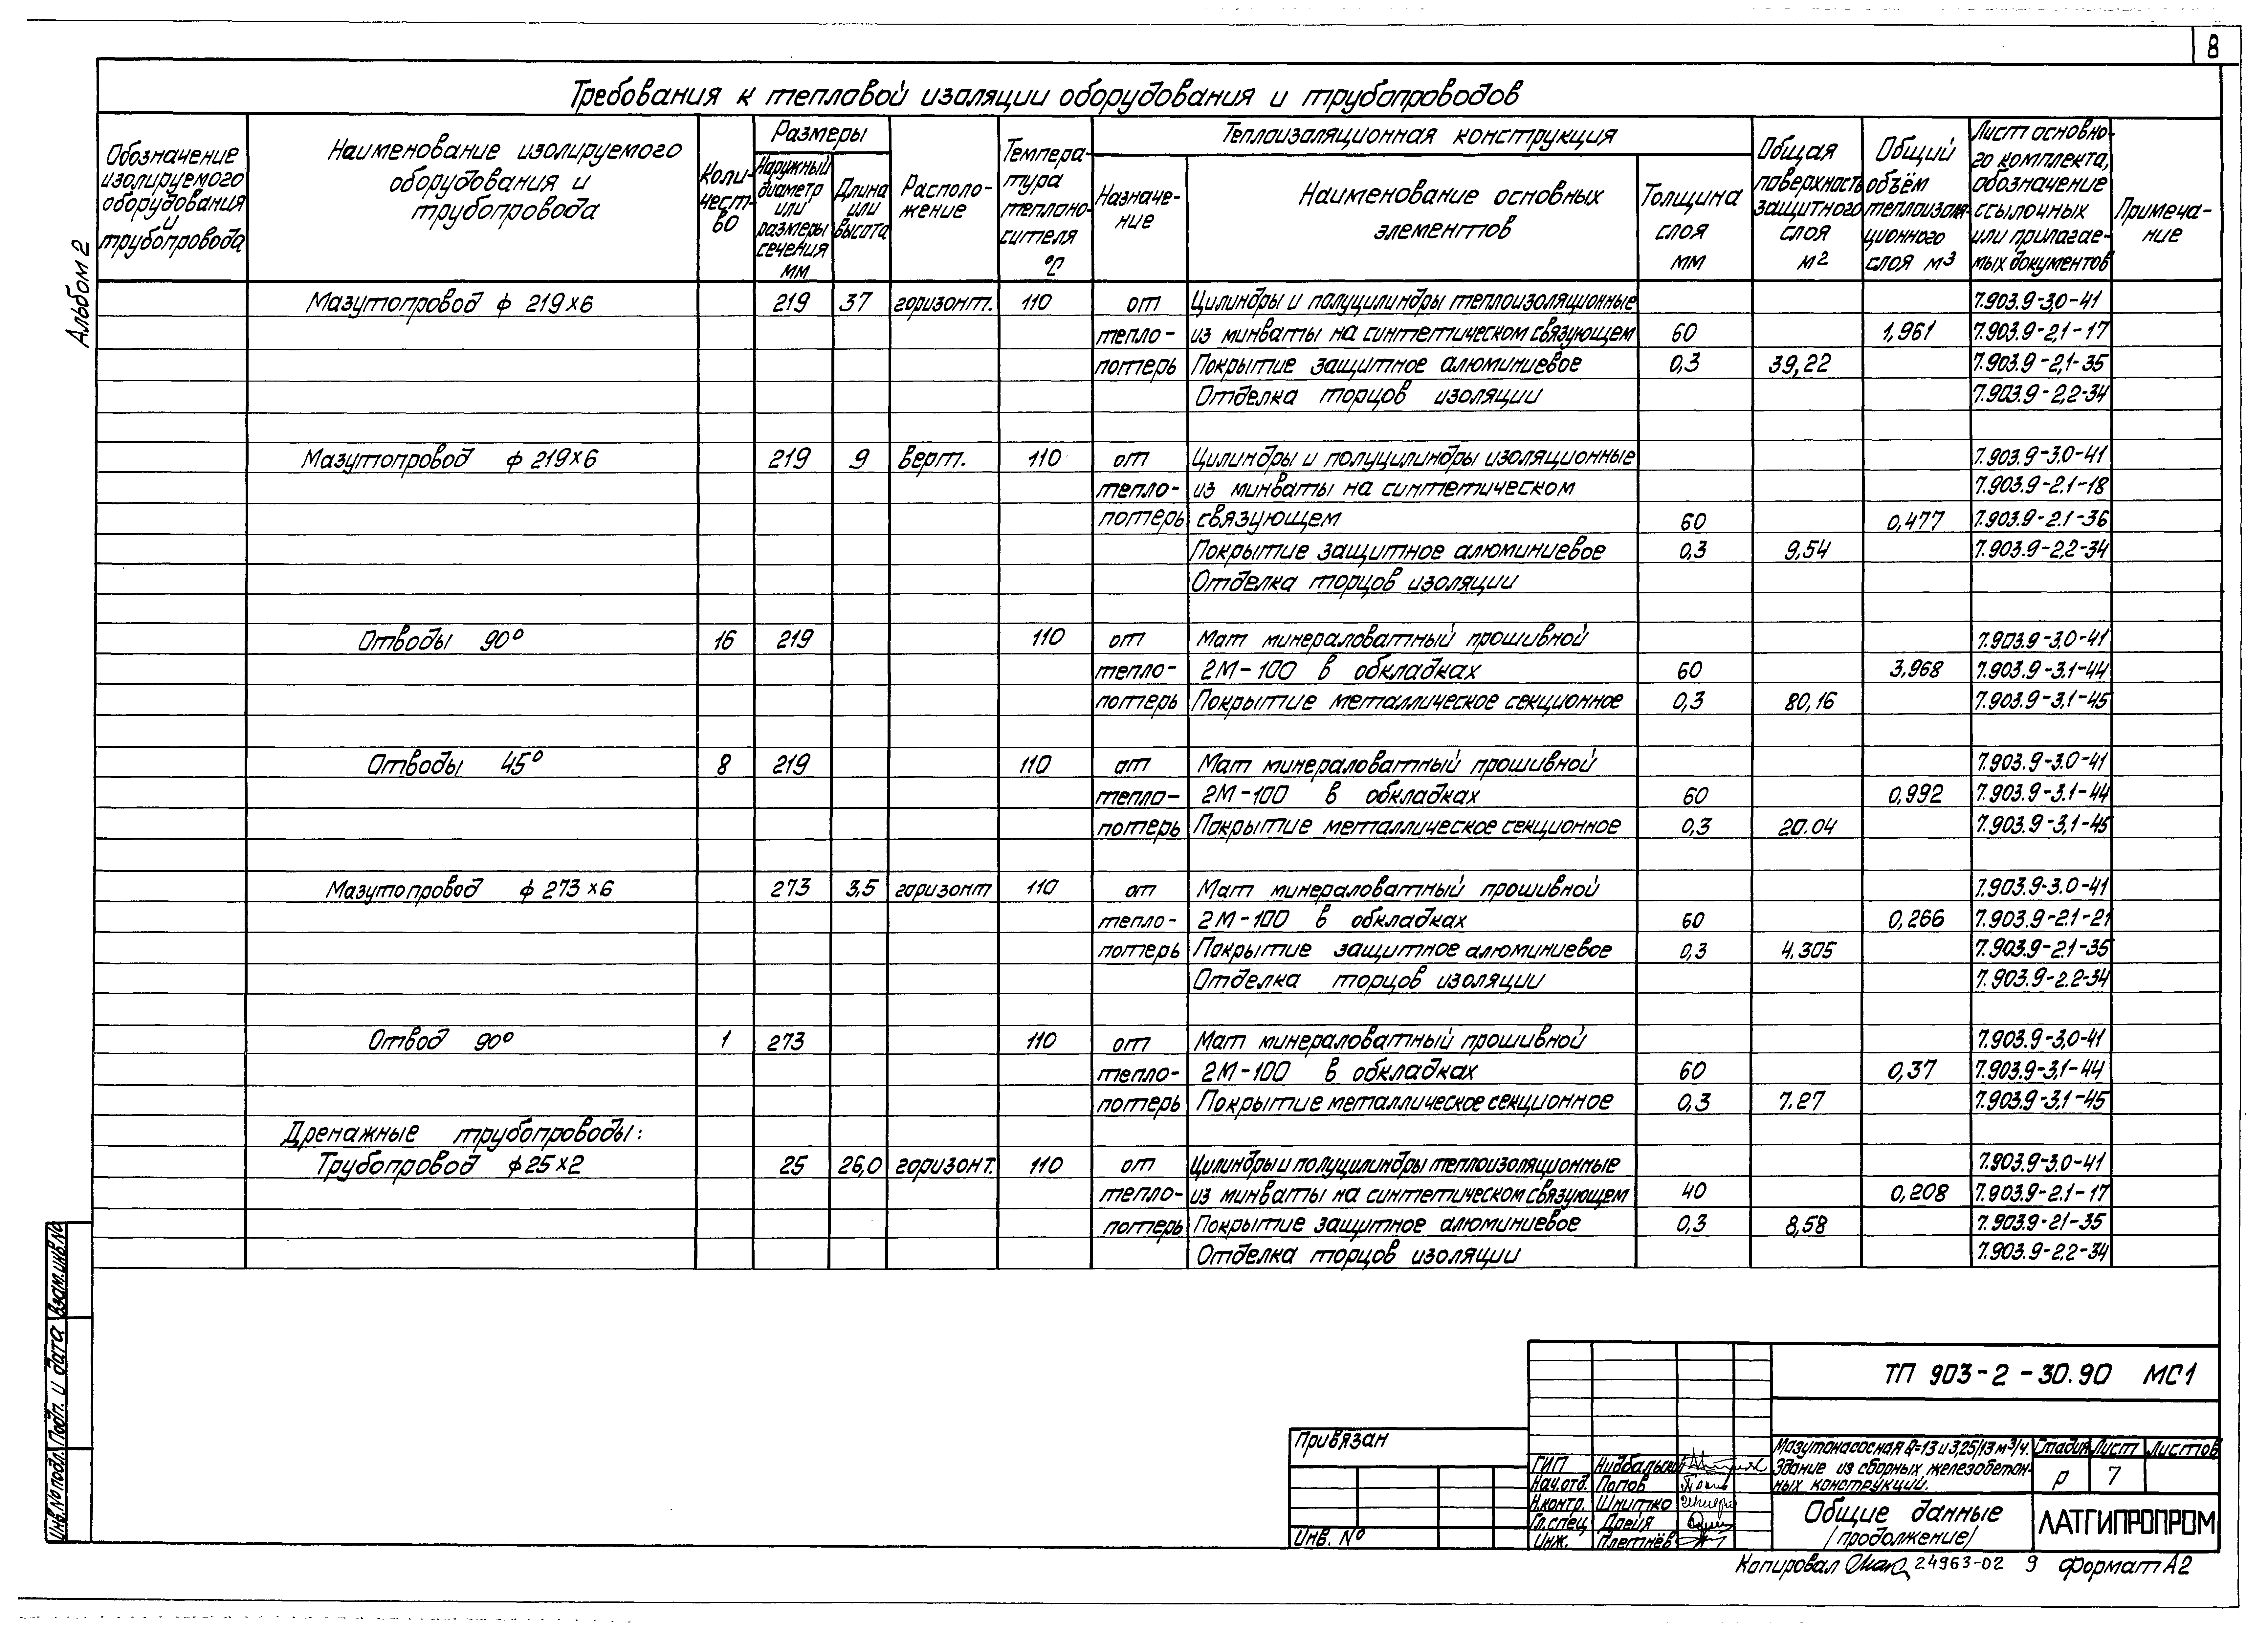 8
Альбом 2
Требования к тепловой изоляции оборудования и трубопроводов
Обозначение изолируемого оборудования и трубопровода
Наименование изолируемого оборудования и трубопровода
Коли-чест-во
Размеры
Наружный диаметр или размеры сечения мм
Длина или высота
Располо-жение
Темпера-тура теплоно-сителя °С
Теплоизоляционная конструкция
Назначе-ние
Наименование основных элементов
Толщина слоя мм
Общая поверхность защитного слоя м²
Общий объём теплоизоля-ционного слоя м³
Лист основно-го комплекта, обозначение ссылочных или прилагае-мых документов
Примеча-ние
Мазутопровод ф 219×6 219 37 горизонт. 110 от Цилиндры и полуцилиндры теплоизоляционные 7.903.9-3,0-41
тепло- из минваты на синтетическом связующем 60 1,961 7.903.9-2,1-17
потерь Покрытие защитное алюминиевое 0,3 39,22 7.903.9-2,1-35
Отделка торцов изоляции 7.903.9-2,2-34
Мазутопровод ф 219×6 219 9 верт. 110 от Цилиндры и полуцилиндры изоляционные 7.903.9-3.0-41
тепло- из минваты на синтетическом 7.903.9-2.1-18
потерь связующем 60 0,477 7.903.9-2.1-36
Покрытие защитное алюминиевое 0,3 9,54 7.903.9-2,2-34
Отделка торцов изоляции
Отводы 90° 16 219 110 от Мат минераловатный прошивной 7.903.9-3,0-41
тепло- 2М-100 в обкладках 60 3,968 7.903.9-3,1-44
потерь Покрытие металлическое секционное 0,3 80,16 7.903.9-3,1-45
Отводы 45° 8 219 110 от Мат минераловатный прошивной 7.903.9-3.0-41
тепло- 2М-100 в обкладках 60 0,992 7.903.9-3.1-44
потерь Покрытие металлическое секционное 0,3 20.04 7.903.9-3,1-45
Мазутопровод ф 273×6 273 3,5 горизонт 110 от Мат минераловатный прошивной 7.903.9-3.0-41
тепло- 2М-100 в обкладках 60 0,266 7.903.9-2.1-21
потерь Покрытие защитное алюминиевое 0,3 4,305 7.903.9-2.1-35
Отделка торцов изоляции 7.903.9-2.2-34
Отвод 90° 1 273 110 от Мат минераловатный прошивной 7.903.9-3,0-41
тепло- 2М-100 в обкладках 60 0,37 7.903.9-3,1-44
потерь Покрытие металлическое секционное 0,3 7.27 7.903.9-3,1-45
Дренажные трубопроводы:
Трубопровод ф25×2 25 26,0 горизонт. 110 от Цилиндры и полуцилиндры теплоизоляционные 7.903.9-3.0-41
тепло- из минваты на синтетическом связующем 40 0,208 7.903.9-2.1-17
потерь Покрытие защитное алюминиевое 0,3 8,58 7.903.9-21-35
Отделка торцов изоляции 7.903.9-2.2-34
Инв. № подл. Подп. и дата Взам. инв. №
Привязан
Инв. №
ТП 903-2-30.90 МС1
ГИП
Нач.отд. Попов
Н.контр. Шнитко
Гл.спец. Дрейя
Инж. Плетнёв
Мазутонасосная Q=13 и 3,25/13 м³/ч.
Здание из сборных железобетон-
ных конструкций.
Стадия Лист Листов
Р 7
Общие данные
/продолжение/
ЛАТГИПРОПРОМ
Копировал 24963-02 9 Формат А2